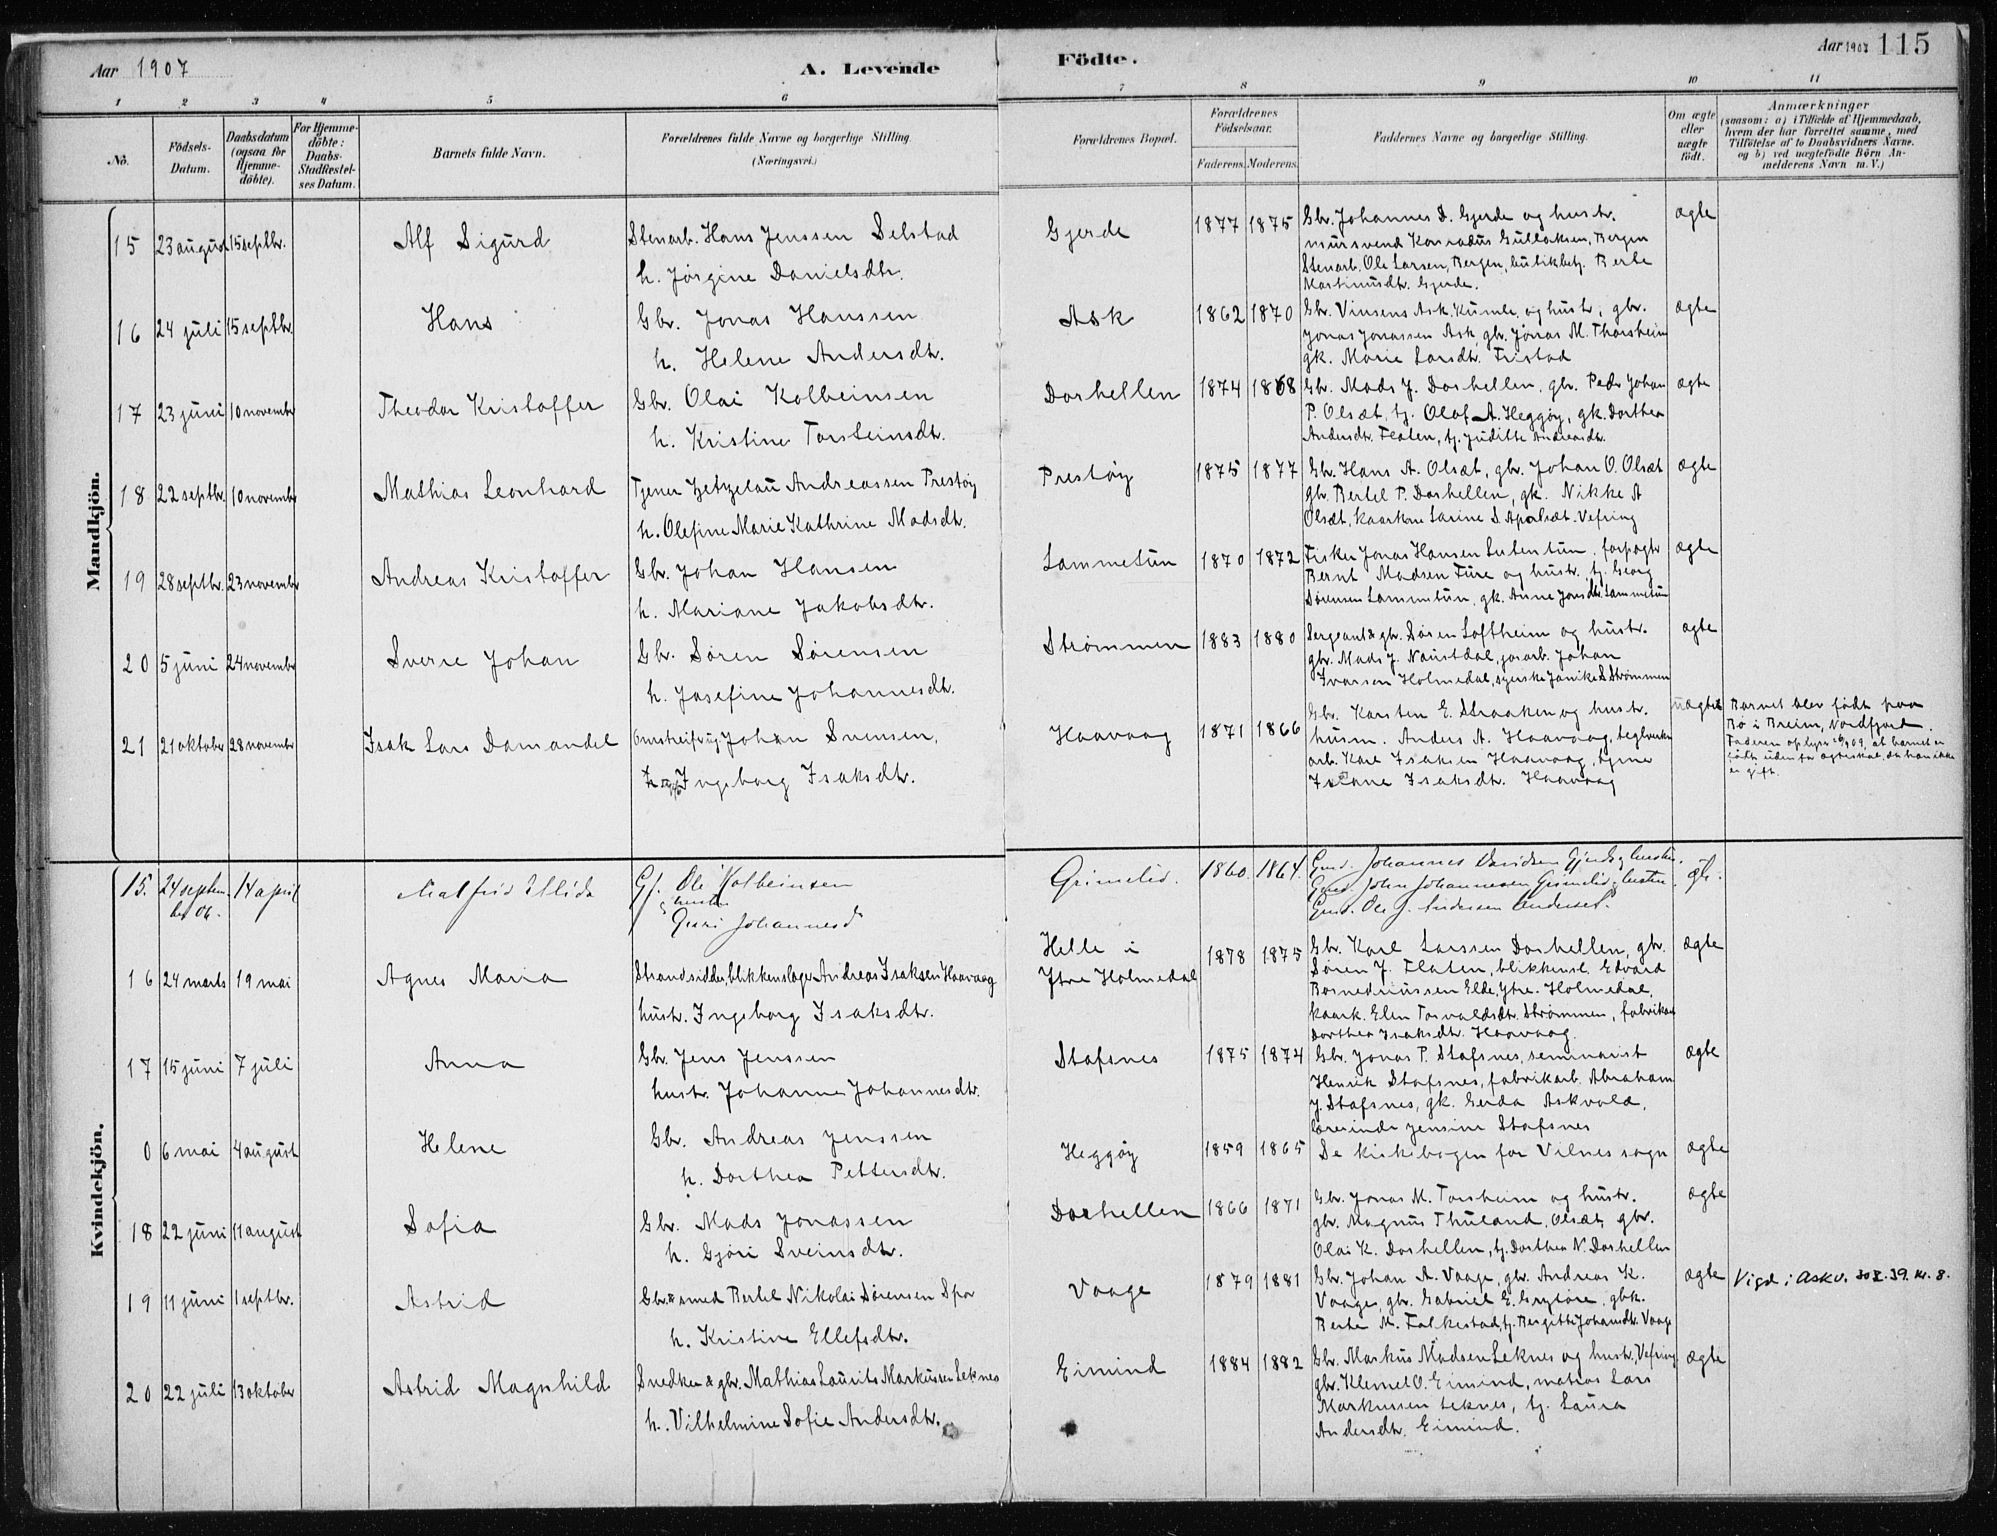 Aar 1907
A. Levende
Födte.
Aar 1907 115
1 2 3 4 5 6 7 8 9 10 11
No.
Födsels-Datum.
Daabsdatum (ogsaa for Hjemme-döbte).
For Hjemme-döbte: Daabs-Stadfæstel-ses Datum.
Barnets fulde Navn.
Forældrenes fulde Navne og borgerlige Stilling. (Næringsvei.)
Forældrenes Bopæl.
Forældrenes Födselsaar.
Faderens. Moderens.
Faddernes Navne og borgerlige Stilling.
Om ægte eller uægte födt.
Anmærkninger
(saasom: a) i Tilfælde af Hjemmedaab,
hvem der har forrettet samme, med
Tilföielse af to Daabsvidners Navne.
og b) ved uægtefödte Börn An-
melderens Navn m. V.)
Mandkjön.
15 23 august 15 septbr. Alf Sigurd
Stenarb. Hans Jenssen Selstad
h. Jørgine Danielsdtr.
Gjerde 1877 1875
Gbr. Johannes D. Gjerde og hustr.
mursvend Konradus Gullaksen, Bergen
Stenarb. Ole Larsen, Bergen, butikbetj. Berte
Martinusdtr. Gjerde.
ægte
16 24 juli 15 septbr. Hans
Gbr. Jonas Hanssen
h. Helene Andersdtr.
Ask 1862 1870
Gbr. Vinsens Ask, Kumle, og hustr., gbr.
Jonas Jonassen Ask, gbr. Jonas M. Thorsheim
gk. Marie Larsdtr. Tristad
ægte
17 23 juni 10 novembr Theodor Kristoffer
Gbr. Olai Kolbeinsen
h. Kristine Torsteinsdtr.
Dorhellen 1874 1868
Gbr. Mads J. Dorhellen, gbr. Peder Johan
P. Olsæt, tj. Olaf A. Heggøy, gk. Dorthea
Andersdtr. Flaten, tj. Judithe Andreasdtr.
ægte
18 22 septbr. 10 novembr Mathias Leonhard
Tjener Zetzelau Andreassen Prestøy
h. Olefine Marie Kathrine Madsdtr.
Prestøy 1875 1877
Gbr. Hans A. Olsæt, gbr. Johan O. Olsæt
gbr. Bertel P. Dorhellen, gk. Nikke A
Olsæt, kaarkone Larine S. Vefring
ægte
19 28 septbr. 23 novembr Andreas Kristoffer
Gbr. Johan Hansen
h. Mariane Jakobsdtr.
Lammetun 1870 1872
Fisker Jonas Hansen Lutentun, forpagtr
Bernt Madsen Fure og hustr., tj. Georg
Sørensen Lammetun, gk. Anne Jonsdtr. Lammetun
ægte
20 5 juni 24 novembr Sverre Johan
Gbr. Søren Sørensen
h. Josefine Johannesdtr.
Strømmen 1883 1880
Sergeant & gbr. Søren Loftheim og hustr.
gbr. Mads J. Naustdal, jorarb. Johan
Ivarsen Holmedal, syerske Janike S Strømmen
ægte
21 21 oktober 28 novembr Isak Lars Damandel
Omstreifrug Johan Svensen,
Ingeborg Isaksdtr.
Haavaag 1871 1866
Gbr. Karsten E. Straaken og hustr.
husm. Anders A. Haavaag, teglverks
arb. Karl Isaksen Haavaag,
Isaksdtr. Haavaag
uægte
Barnet blev født paa
Bø i Breim, Nordfjord.
Faderen oplyser 1909, at barnet er
født udenfor ægteskab, da han ikke
er gift.
Kvindekjön.
15. 24 septem 14 april
ber 06.
Malfrid Alida
Gf. Ole Kolbeinsen
& hustr
Guri Johannesd
Grimelid. 1860. 1864.
Gmd. Johannes Davidsen Gjerde & hustr.
Gmd. John Johannesen Grimelid & hustr.
Gmd. Ole J.
ægt.
16 24 marts 19 mai Agnes Maria
Strandsidder, blikkenslager Andreas Isaksen Haavaag
hustr. Ingeborg Isaksdtr.
Helle i
Ytre Holmedal
1878 1875
Gbr. Karl Larssen Dorhellen, gbr.
Søren J. Flaten, blikkensl. Edvard
Elde, Ytre-Holmedal,
kaark. Elen Torvaldsdtr. Strømmen, fabrikar
Dorthea Isaksdtr. Haavaag
ægte
17 15 juni 7 juli Anna
Gbr. Jens Jenssen
hustr. Johanne Johannesdtr.
Stafsnes 1875 1874
Gbr. Jonas P. Stafsnes, seminarist
Henrik Stafsnes, fabrikarb. Abraham
J. Stafsnes, gk. Gerda Askvold,
lærerinde Jensine Stafsnes
ægte
0 6 mai 4 august Helene
Gbr. Andreas Jenssen
h. Dorthea Pettersdtr.
Heggøy 1859 1865
Se kirkebogen for Vilnes sogn
ægte
18 22 juni 11 august Sofia
Gbr. Mads Jonassen
h. Gjöri Sveinsdtr.
Dorhellen 1866 1871
Gbr. Jonas M. Torsheim og hustr.
gbr. Magnus Thuland, Olsæt, gbr.
Olai K. Dorhellen, tj. Dorthea N. Dorhellen
ægte
19 11 juni 1 septbr. Astrid
Gbr. & smed Bertel Nikolai Sørensen Spor
h. Kristine Ellefsdtr.
Vaage 1879 1881
Gbr. Johan A. Vaage, gbr. Andreas K.
Vaage, gbr. Gabriel E. Grytøre, gbk.
Berte M. Falkestad, tj. Bergitte Johansdtr. Vaage
ægte
Vigd i Askv. 30 X. 39. nr. 8.
20 22 juli 13 oktober Astrid Magnhild
Snedker & gbr. Mathias Laurits Markussen Leknes
h. Vilhelmine Sofie Andersdtr.
Eimind 1884 1882
Gbr. Markus Madsen Leknes og hustr., Vefring
gbr. Klemet O. Eimind, matros Lars
Markussen Leknes, tj. Laura
Andersdtr. Eimind.
ægte